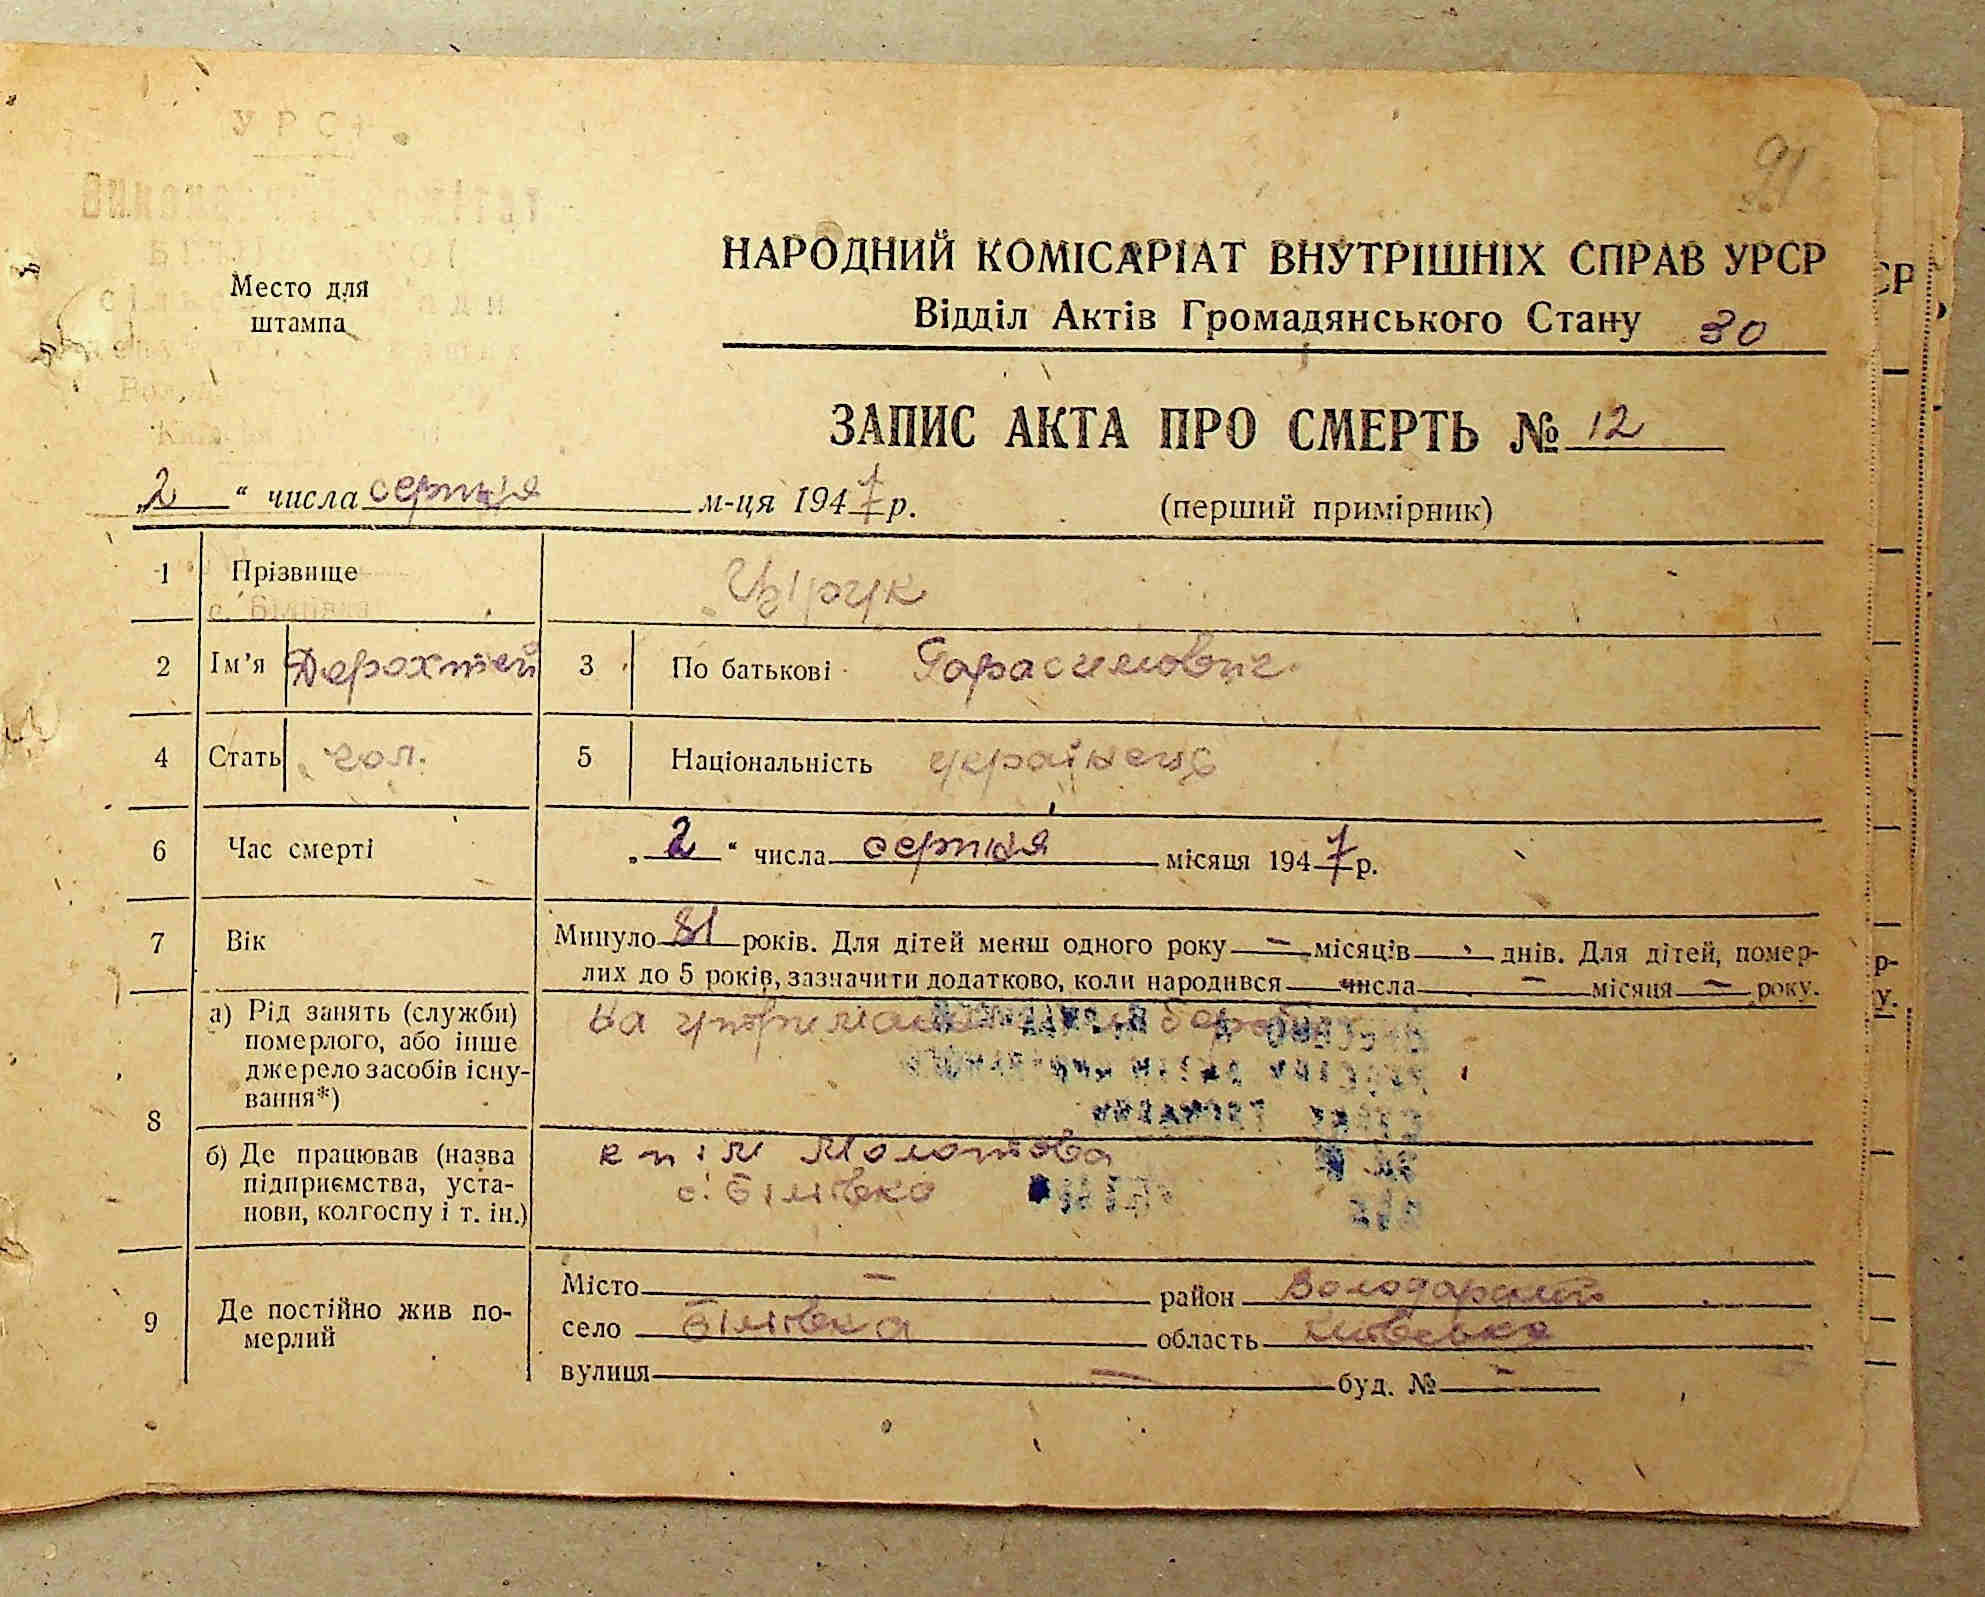 91
УРСР
Виконавчий комітет
Место для
штампа
НАРОДНИЙ КОМІСАРІАТ ВНУТРІШНІХ СПРАВ УРСР
Відділ Актів Громадянського Стану 30
ЗАПИС АКТА ПРО СМЕРТЬ № 12
„2“ числа серпня м-ця 1947 р. (перший примірник)
1 Прізвище
2 Ім’я Дорохтей 3 По батькові Гарасимович
4 Стать чол. 5 Національність українець
6 Час смерті „2“ числа серпня місяця 1947 р.
7 Вік Минуло 81 років. Для дітей менш одного року — місяців — днів. Для дітей, помер-
лих до 5 років, зазначити додатково, коли народився — числа — місяця — року.
8 а) Рід занять (служби)
померлого, або інше
джерело засобів існу-
вання*)
На утриманні
б) Де працював (назва
підприємства, уста-
нови, колгоспу і т. ін.)
к п ім Молотова
с. Біліївка
9 Де постійно жив по-
мерлий
Місто — район Володарський
село Біліївка область Київська
вулиця — буд. № —